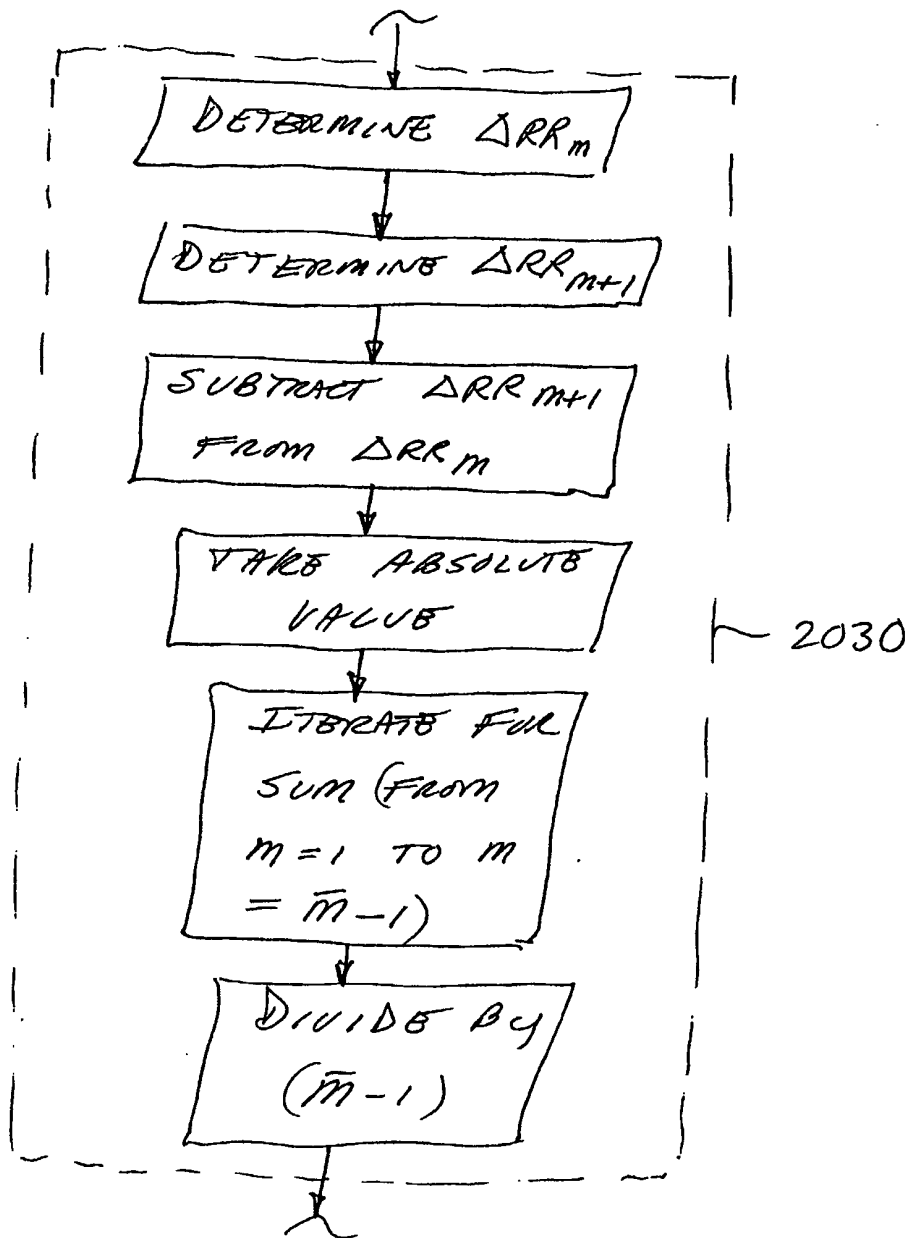 DETERMINE ΔRRm
DETERMINE ΔRRm+1
SUBTRACT ΔRRm+1
FROM ΔRRm
TAKE ABSOLUTE
VALUE
ITERATE FOR
SUM (FROM
m = 1 TO m
= m̅ - 1)
DIVIDE BY
(m̅ - 1)
2030